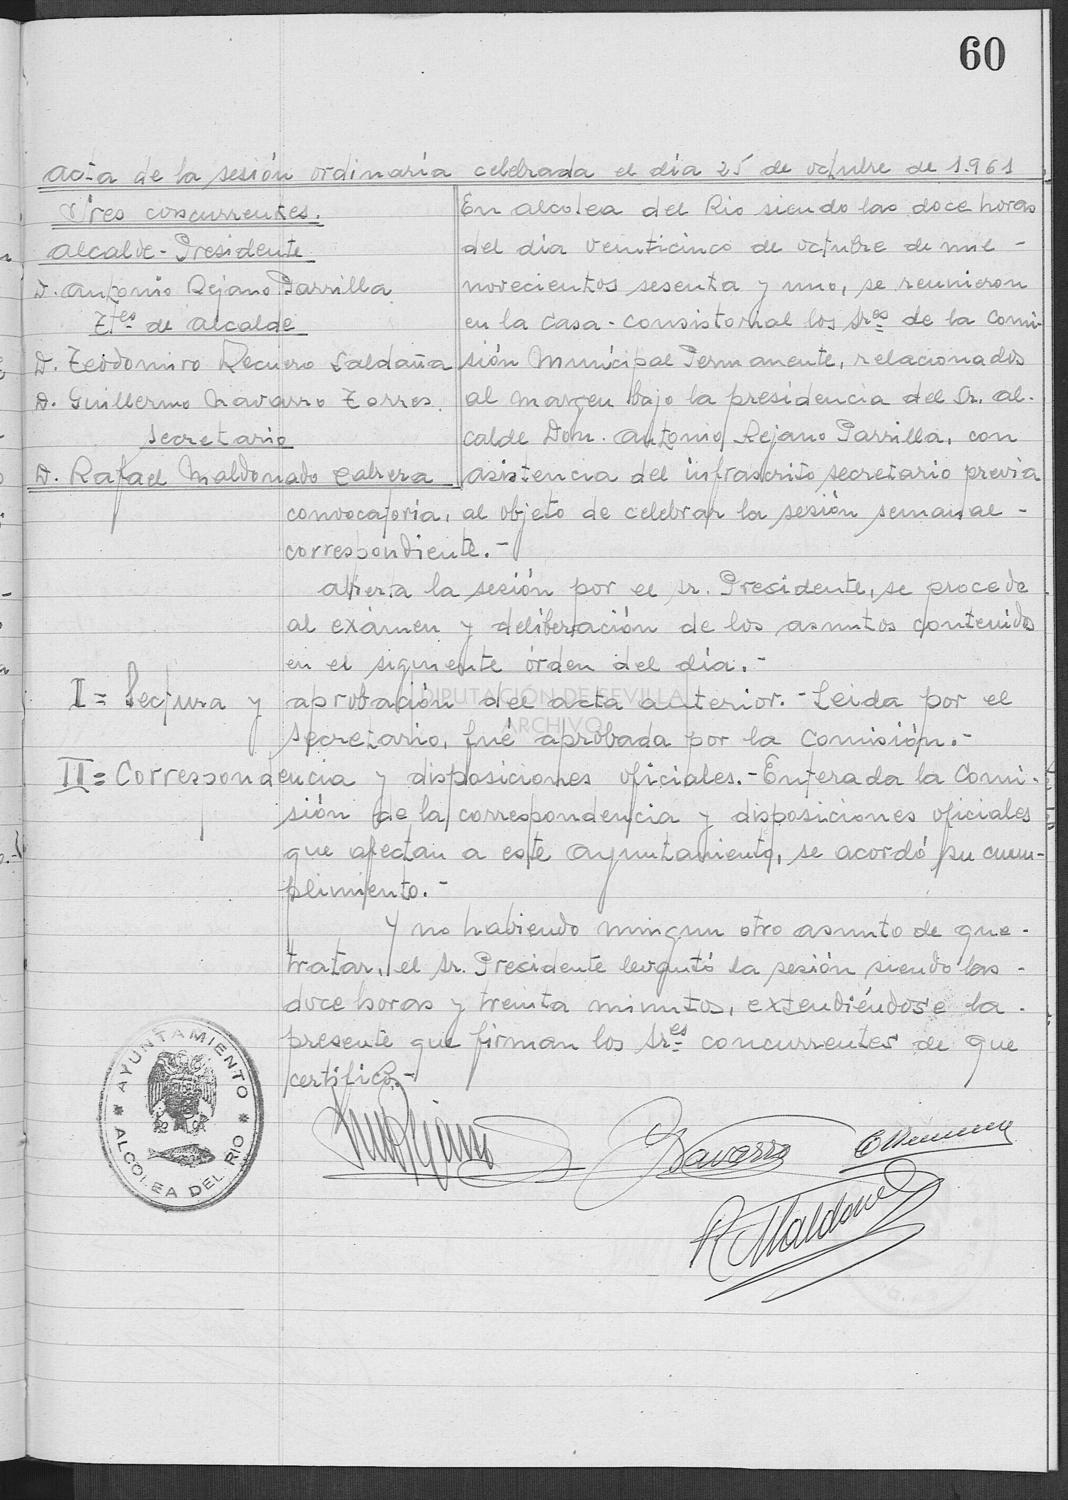 60
Acta de la sesión ordinaria celebrada el día 25 de octubre de 1.961
Sres concurrentes.
Alcalde-Presidente
D. Antonio Rejano Parrilla
Ttes de Alcalde
D. Teodomiro Recuero Saldaña
D. Guillermo Navarro Torres.
Secretario
D. Rafael Maldonado Cabrera
En Alcolea del Rio siendo las doce horas
del día veinticinco de octubre de mil -
novecientos sesenta y uno, se reunieron
en la Casa-Consistorial los Sres de la Comi-
sión Municipal Permanente, relacionados
al margen bajo la presidencia del Sr. Al-
calde Don. Antonio Rejano Parrilla, con
asistencia del infrascrito secretario previa
convocatoria, al objeto de celebrar la sesión semanal -
correspondiente.-
Abierta la sesión por el Sr. Presidente, se procede
al exámen y deliberación de los asuntos contenidos
en el siguiente órden del día.-
I = Lectura y aprobación del acta anterior. - Leida por el
Secretario, fué aprobada por la Comisión.-
II = Correspondencia y disposiciones oficiales.- Enterada la Comi-
sión de la correspondencia y disposiciones oficiales
que afectan a este Ayuntamiento, se acordó su cum-
plimiento.-
Y no habiendo ningun otro asunto de que -
tratar, el Sr. Presidente levantó la sesión siendo las -
doce horas y treinta minutos, extendiéndose la -
presente que firman los Sres concurrentes de que
certifico.-
DIPUTACIÓN DE SEVILLA
ARCHIVO
AYUNTAMIENTO
ALCOLEA DEL RIO
Ant Rejano
G Navarro
R Maldonado